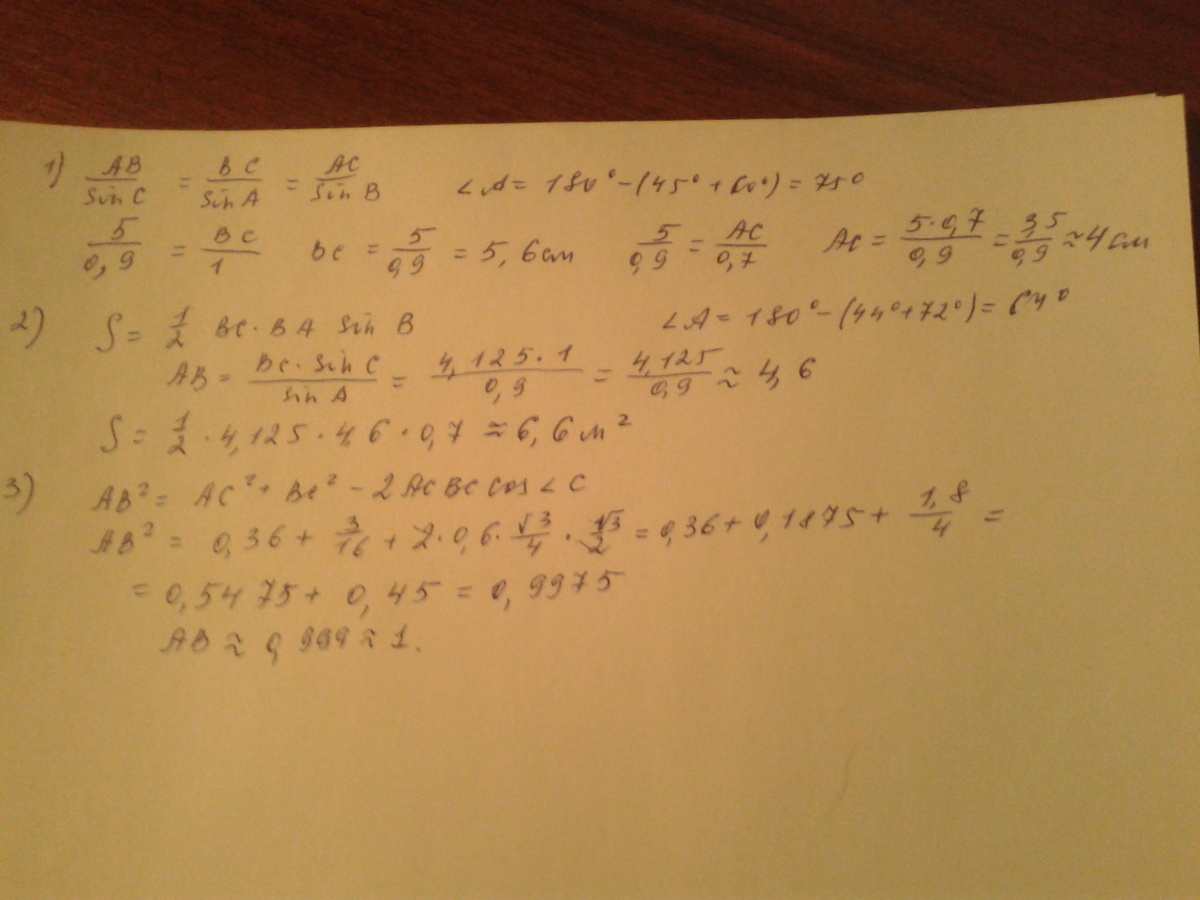 1) AB/sin C = BC/sin A = AC/sin B ∠A = 180° - (45° + 60°) = 75°
5/0,9 = BC/1 BC = 5/0,9 = 5,6 см 5/0,9 = AC/0,7 AC = 5·0,7/0,9 = 3,5/0,9 ≈ 4 см
2) S = 1/2 BC · BA sin B ∠A = 180° - (44° + 72°) = 64°
AB = BC · sin C/sin A = 4,125 · 1/0,9 = 4,125/0,9 ≈ 4,6
S = 1/2 · 4,125 · 4,6 · 0,7 ≈ 6,6 м²
3) AB² = AC² + BC² - 2 AC BC cos ∠ C
AB² = 0,36 + 3/16 + 2 · 0,6 · √3/4 · √3/2 = 0,36 + 0,1875 + 1,8/4 =
= 0,5475 + 0,45 = 0,9975
AB ≈ 0,999 ≈ 1.